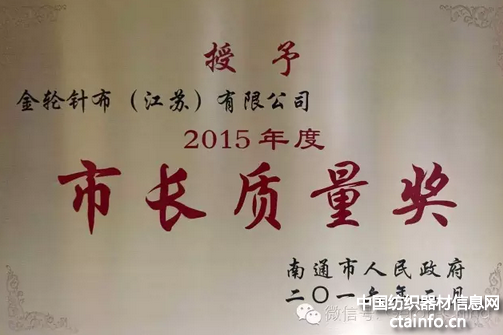 授予
金轮针布（江苏）有限公司
2015年度
市长质量奖
南通市人民政府
二〇一六年二月
微信号
中国纺织器材信息网
ctainfo.cn